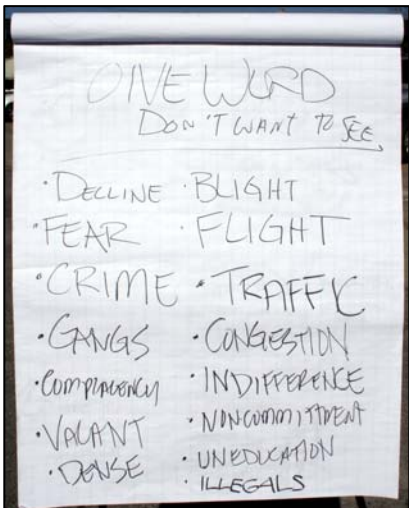 ONE WORD
DON'T WANT TO SEE
• DECLINE
• FEAR
• CRIME
• GANGS
• COMPLACENCY
• VACANT
• DENSE
• BLIGHT
• FLIGHT
• TRAFFIC
• CONGESTION
• INDIFFERENCE
• NONCOMMITMENT
• UNEDUCATION
• ILLEGALS